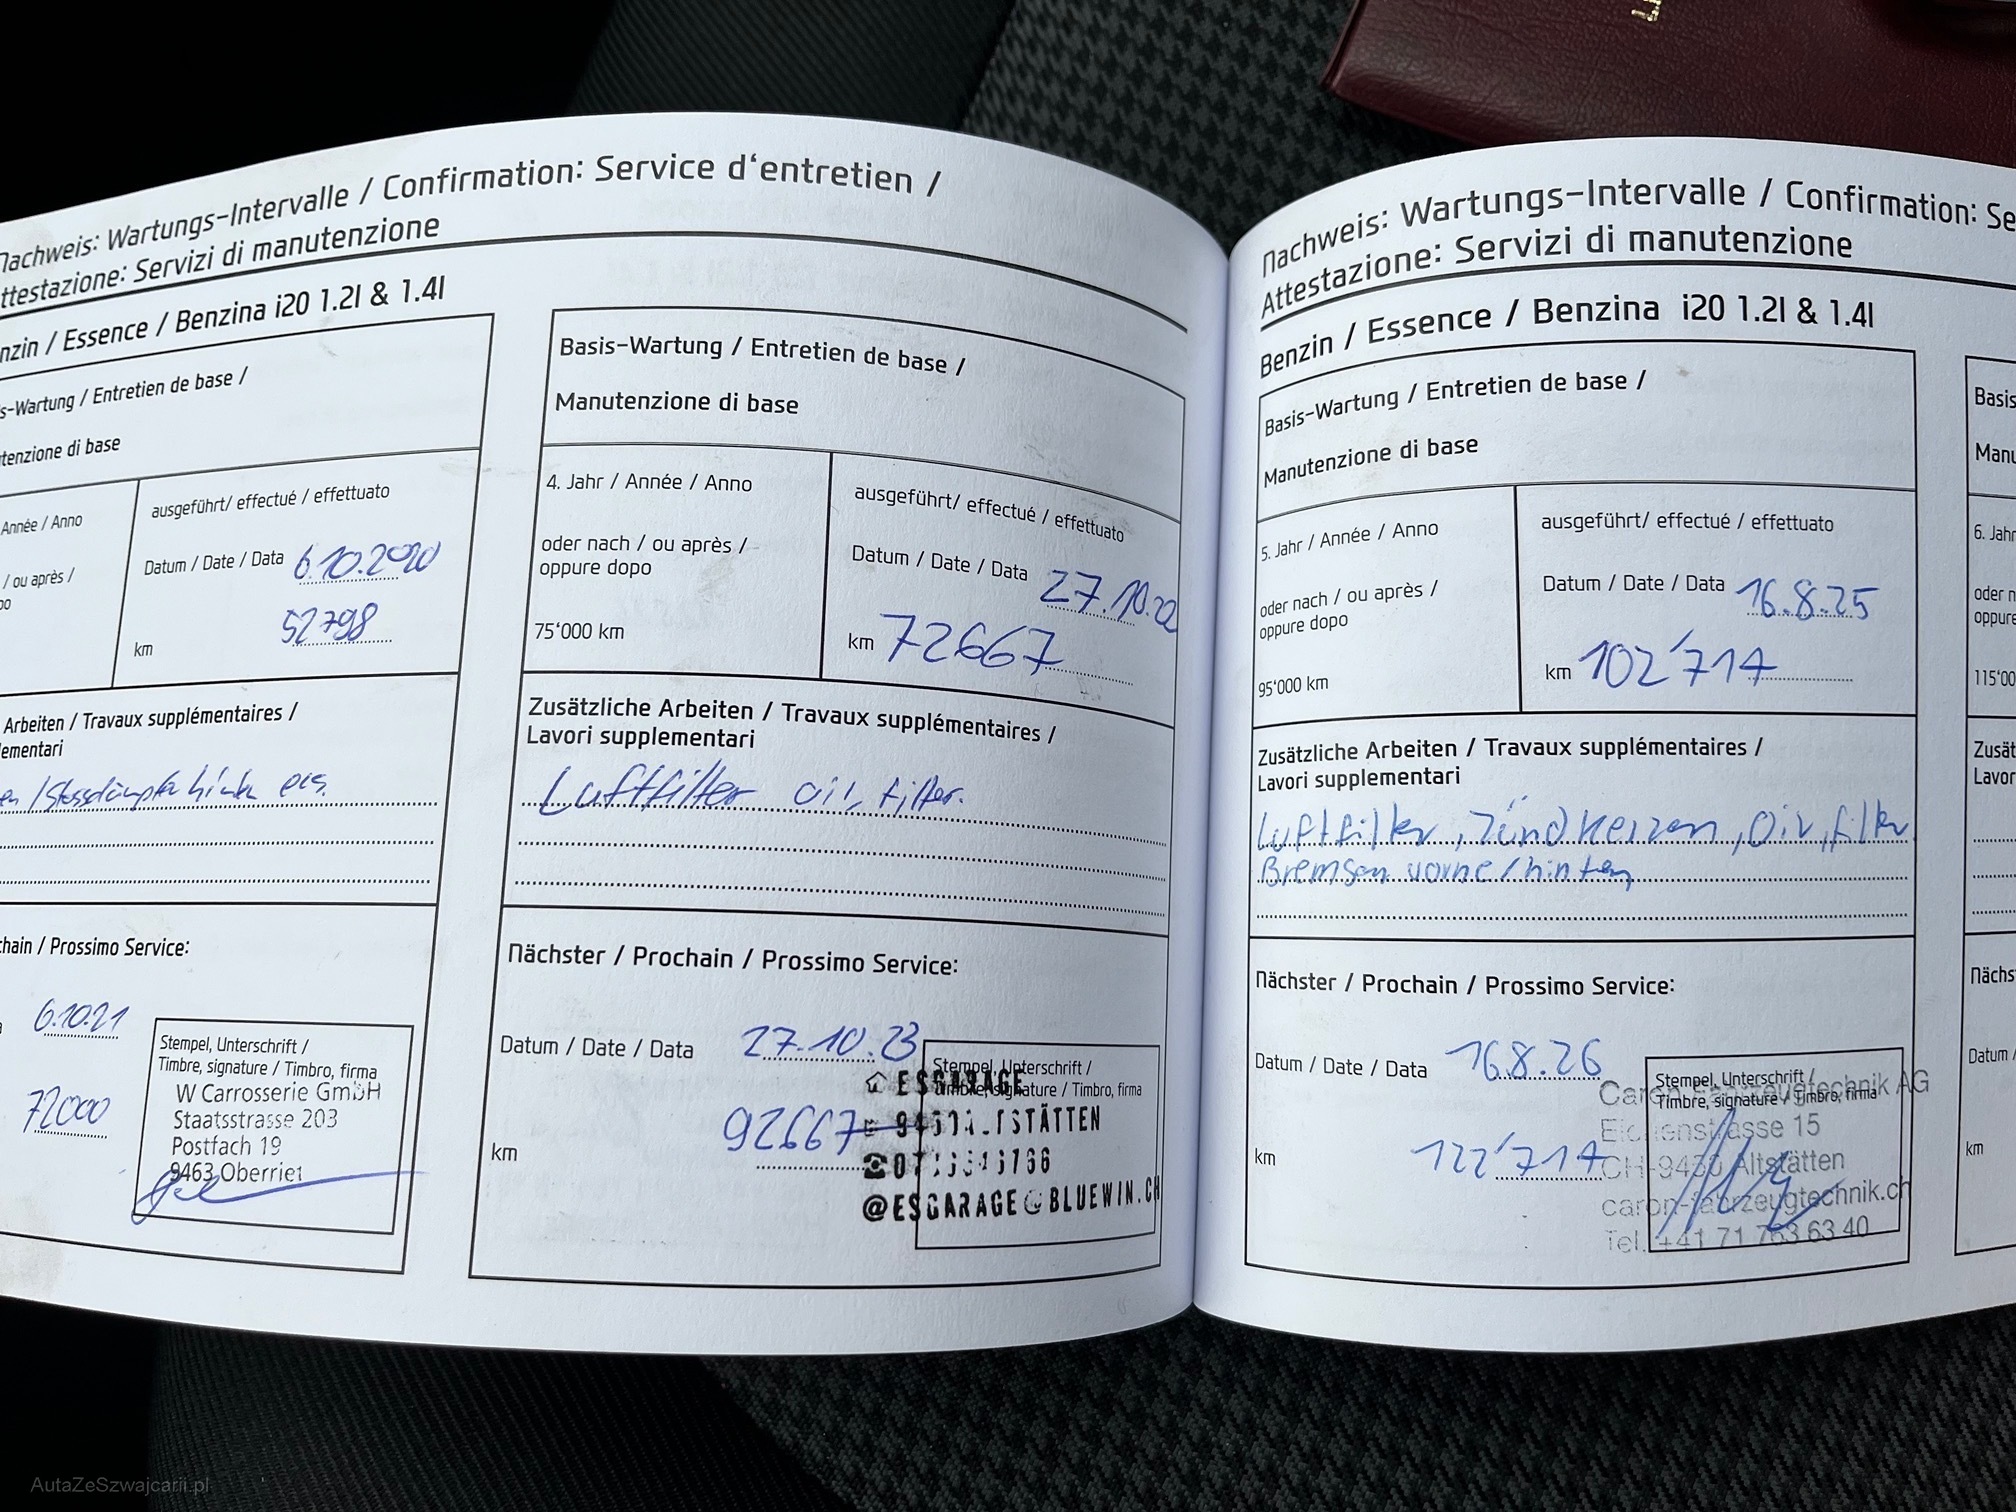 Nachweis: Wartungs-Intervalle / Confirmation: Service d'entretien /
ttestazione: Servizi di manutenzione
nzin / Essence / Benzina i20 1.2l & 1.4l
s-Wartung / Entretien de base /
tenzione di base
Année / Anno
/ ou après /
ausgeführt/ effectué / effettuato
Datum / Date / Data 6.10.2020
km 52798
Arbeiten / Travaux supplémentaires /
lementari
en / Stossdämpfer hinten ers.
chain / Prossimo Service:
6.10.21
72000
Stempel, Unterschrift /
Timbre, signature / Timbro, firma
W Carrosserie GmbH
Staatsstrasse 203
Postfach 19
9463 Oberriet
Basis-Wartung / Entretien de base /
Manutenzione di base
4. Jahr / Année / Anno
oder nach / ou après /
oppure dopo
75'000 km
ausgeführt/ effectué / effettuato
Datum / Date / Data 27.10.22
km 72667
Zusätzliche Arbeiten / Travaux supplémentaires /
Lavori supplementari
Luftfilter oil, filter.
Nächster / Prochain / Prossimo Service:
Datum / Date / Data 27.10.23
km 92667
Stempel, Unterschrift /
Timbre, signature / Timbro, firma
ESGARAGE
@ESGARAGE@BLUEWIN.CH
Nachweis: Wartungs-Intervalle / Confirmation: Se
Attestazione: Servizi di manutenzione
Benzin / Essence / Benzina i20 1.2l & 1.4l
Basis-Wartung / Entretien de base /
Manutenzione di base
5. Jahr / Année / Anno
oder nach / ou après /
oppure dopo
95'000 km
ausgeführt/ effectué / effettuato
Datum / Date / Data 16.8.25
km 102'717
Zusätzliche Arbeiten / Travaux supplémentaires /
Lavori supplementari
Luftfilter, Zündkerzen, Oil, filter
Bremsen vorne/hinten
Nächster / Prochain / Prossimo Service:
Datum / Date / Data 16.8.26
km 122'717
Stempel, Unterschrift /
Timbre, signature / Timbro, firma
Caron Fahrzeugtechnik AG
Eichenstrasse 15
CH-9450 Altstätten
caron-fahrzeugtechnik.ch
Tel. +41 71 763 63 40
Basis
Manu
6. Jahr
oder n
oppure
115'00
Zusät
Lavor
Nächs
Datum /
km
AutaZeSzwajcarii.pl